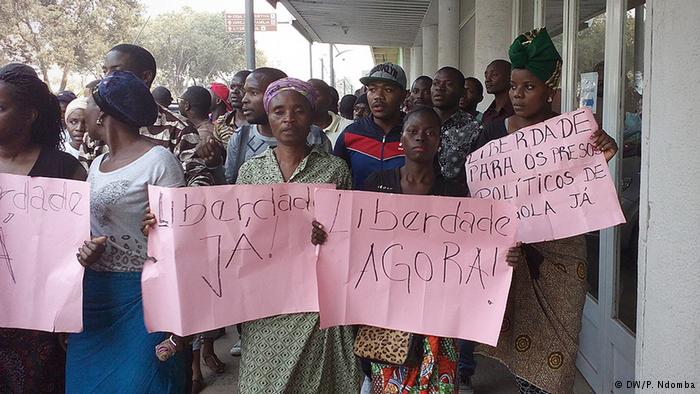 rdade
Á
Liberdade
JÁ!
Liberdade
AGORA!
LIBERDADE
PARA OS PRESOS
POLÍTICOS DE
OLA JÁ
© DW/P. Ndomba